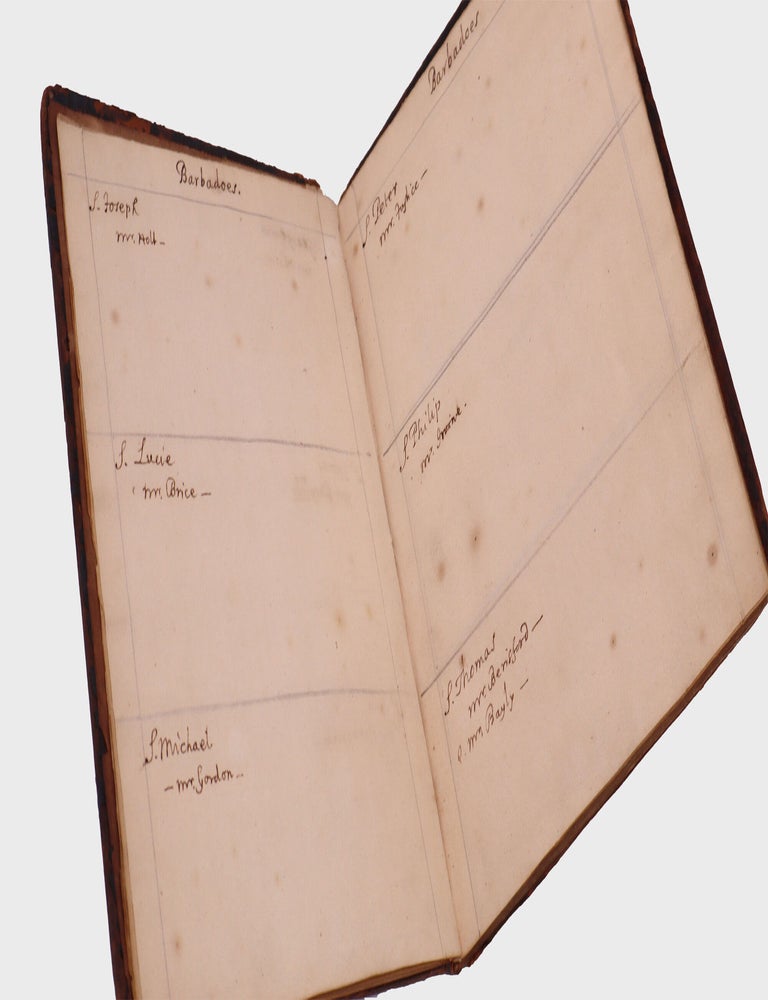 Barbadoes.
S. Joseph
mr. Holt -
S. Lucie
mr. Brice -
S. Michael
- mr. Gordon -
Barbadoes
S. Peter
mr. -
S. Philip
mr. Irvine -
S. Thomas
mr. Berisford -
Q. mr. Bayly -